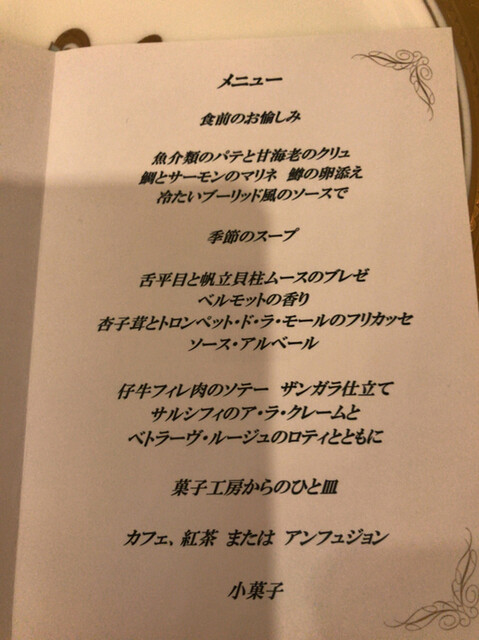 メニュー
食前のお愉しみ
魚介類のパテと甘海老のクリュ
鯛とサーモンのマリネ 鱒の卵添え
冷たいブーリッド風のソースで
季節のスープ
舌平目と帆立貝柱ムースのブレゼ
ベルモットの香り
杏子茸とトロンペット・ド・ラ・モールのフリカッセ
ソース・アルベール
仔牛フィレ肉のソテー ザンガラ仕立て
サルシフィのア・ラ・クレームと
ベトラーヴ・ルージュのロティとともに
菓子工房からのひと皿
カフェ、紅茶 または アンフュジョン
小菓子